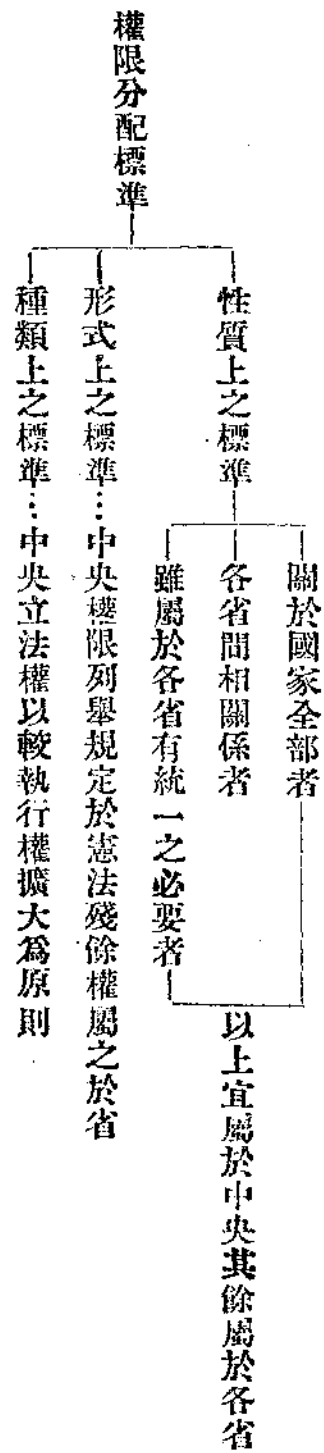 權限分配標準
性質上之標準
關於國家全部者
各省間相關係者
雖屬於各省有統一之必要者
以上宜屬於中央其餘屬於各省
形式上之標準…中央權限列舉規定於憲法殘餘權屬之於省
種類上之標準…中央立法權以較執行權擴大爲原則